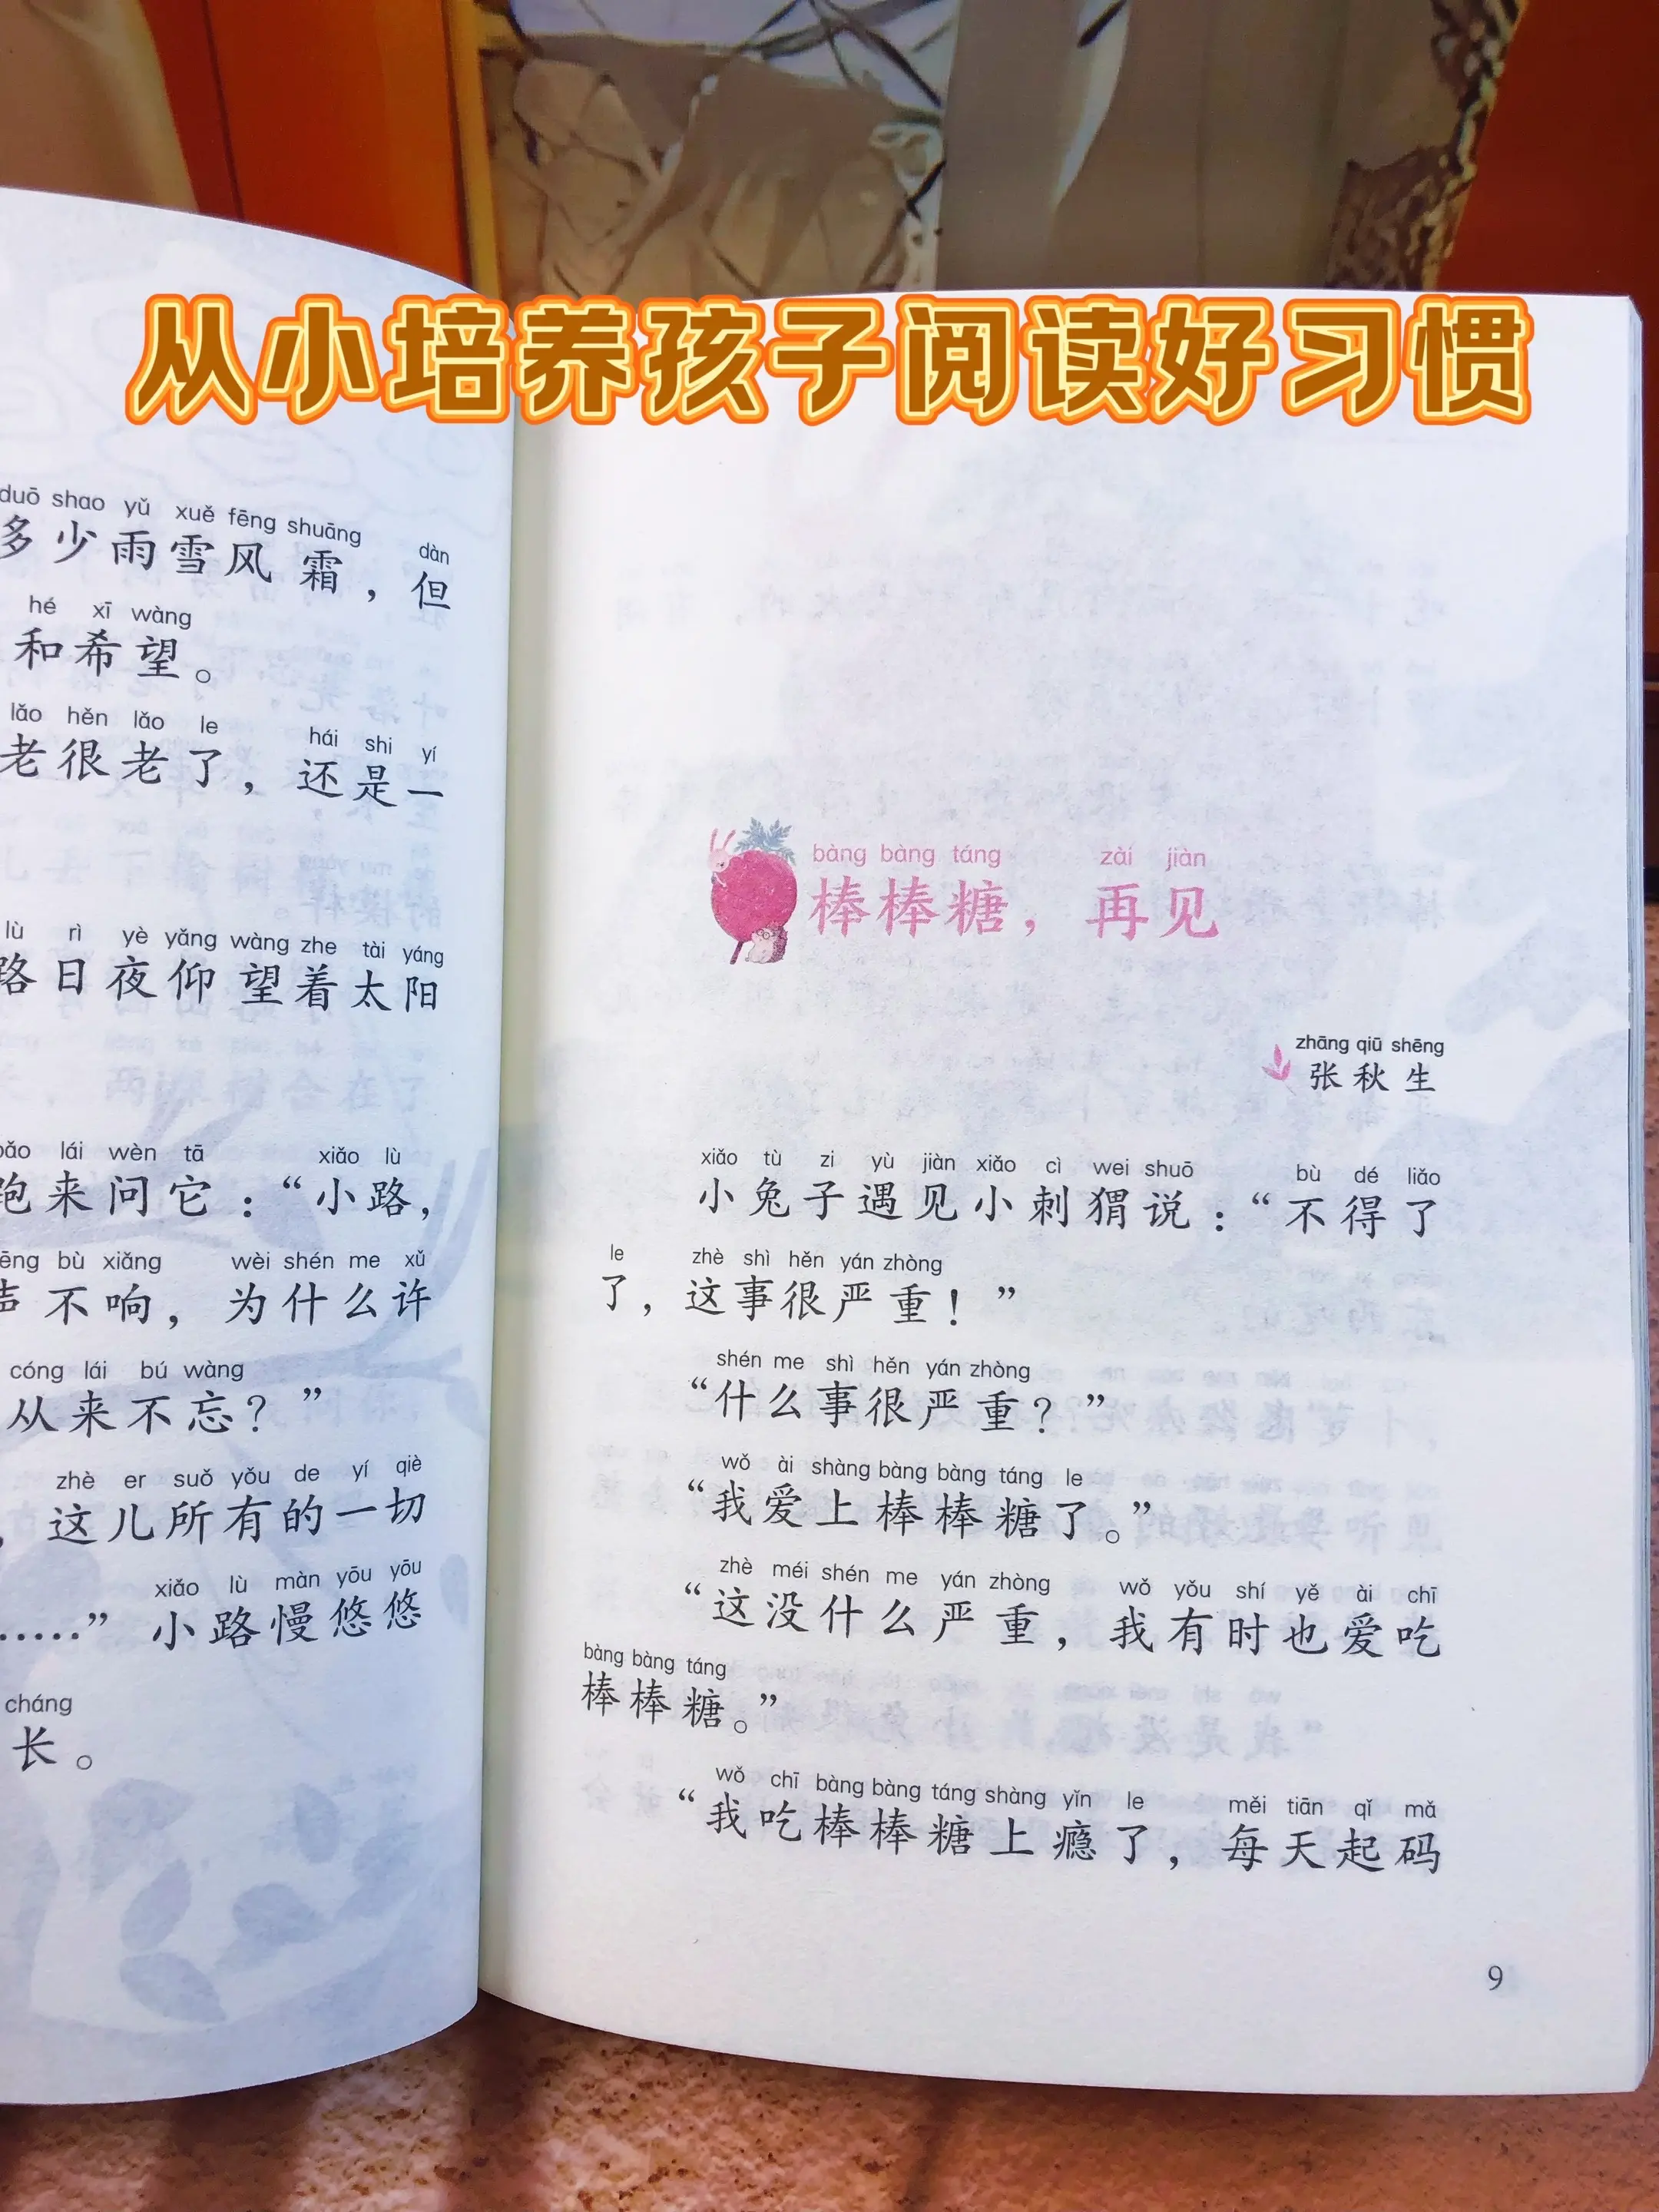 从小培养孩子阅读好习惯
duō shao yǔ xuě fēng shuāng dàn
多少雨雪风霜，但
hé xī wàng
和希望。
lǎo hěn lǎo le hái shi yí
老很老了，还是一
lù rì yè yǎng wàng zhe tài yáng
路日夜仰望着太阳
lái wèn tā xiǎo lù
跑来问它：“小路，
bù xiǎng wèi shén me xǔ
声不响，为什么许
cóng lái bú wàng
从来不忘？”
zhè er suǒ yǒu de yí qiè
，这儿所有的一切
xiǎo lù màn yōu yōu
……”小路慢悠悠
cháng
长。
bàng bàng táng zài jiàn
棒棒糖，再见
zhāng qiū shēng
张秋生
xiǎo tù zi yù jiàn xiǎo cì wei shuō bù dé liǎo
小兔子遇见小刺猬说：“不得了
le zhè shì hěn yán zhòng
了，这事很严重！”
shén me shì hěn yán zhòng
“什么事很严重？”
wǒ ài shàng bàng bàng táng le
“我爱上棒棒糖了。”
zhè méi shén me yán zhòng wǒ yǒu shí yě ài chī
“这没什么严重，我有时也爱吃
bàng bàng táng
棒棒糖。”
wǒ chī bàng bàng táng shàng yǐn le měi tiān qǐ mǎ
“我吃棒棒糖上瘾了，每天起码
9